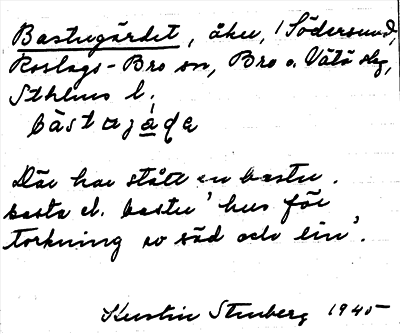 Bastugärdet, åker, i Södersund,
Roslags-Bro sn, Bro o. Vätö slg,
Sthlms l.
bàstɷjạ̈ḍɑ
Där har stått en bastu.
basta el. bastu 'hus för
torkning av säd och lin'.
Kerstin Stenberg 1945